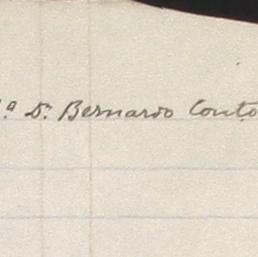 ª Dr Bernardo Couto